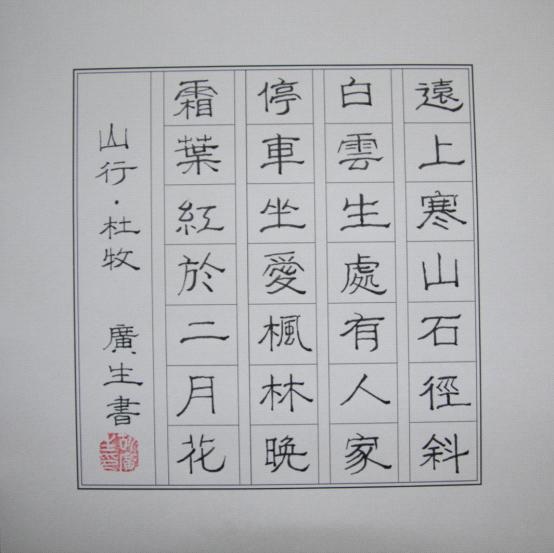 遠上寒山石徑斜
白雲生處有人家
停車坐愛楓林晚
霜葉紅於二月花
山行·杜牧 廣生書